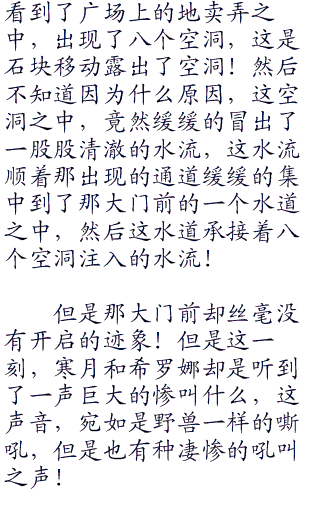 看到了广场上的地卖弄之
中，出现了八个空洞，这是
石块移动露出了空洞！然后
不知道因为什么原因，这空
洞之中，竟然缓缓的冒出了
一股股清澈的水流，这水流
顺着那出现的通道缓缓的集
中到了那大门前的一个水道
之中，然后这水道承接着八
个空洞注入的水流！
但是那大门前却丝毫没
有开启的迹象！但是这一
刻，寒月和希罗娜却是听到
了一声巨大的惨叫什么，这
声音，宛如是野兽一样的嘶
吼，但是也有种凄惨的吼叫
之声！